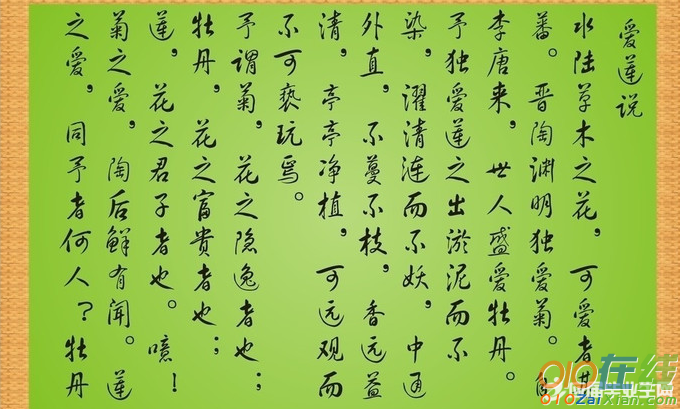 爱莲说
水陆草木之花,可爱者甚
蕃。晋陶渊明独爱菊。自
李唐来,世人盛爱牡丹。
予独爱莲之出淤泥而不
染,濯清涟而不妖,中通
外直,不蔓不枝,香远益
清,亭亭净植,可远观而
不可亵玩焉。
予谓菊,花之隐逸者也;
牡丹,花之富贵者也;
莲,花之君子者也。噫!
菊之爱,陶后鲜有闻。莲
之爱,同予者何人?牡丹
010在线
010ZaiXian.com